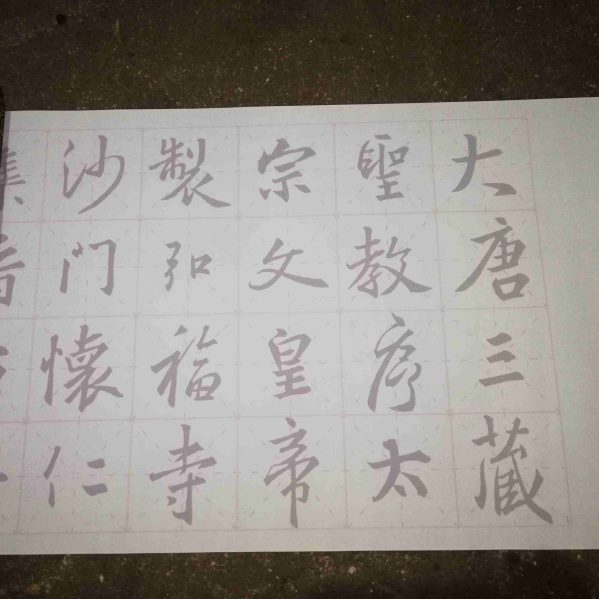 大唐三藏
聖教序太
宗文皇帝
製弘福寺
沙門懷仁